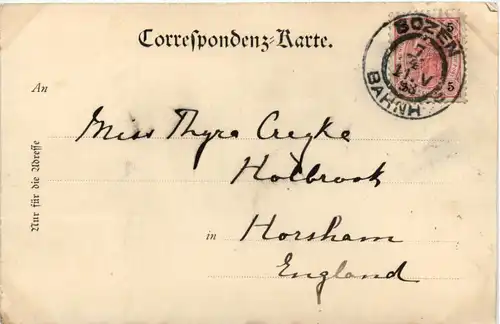 Correspondenz-Karte.
BOZEN
BAHNH
5
An
Miss Thyra Creyke
Holbrook
in Horsham
England
Nur für die Adresse